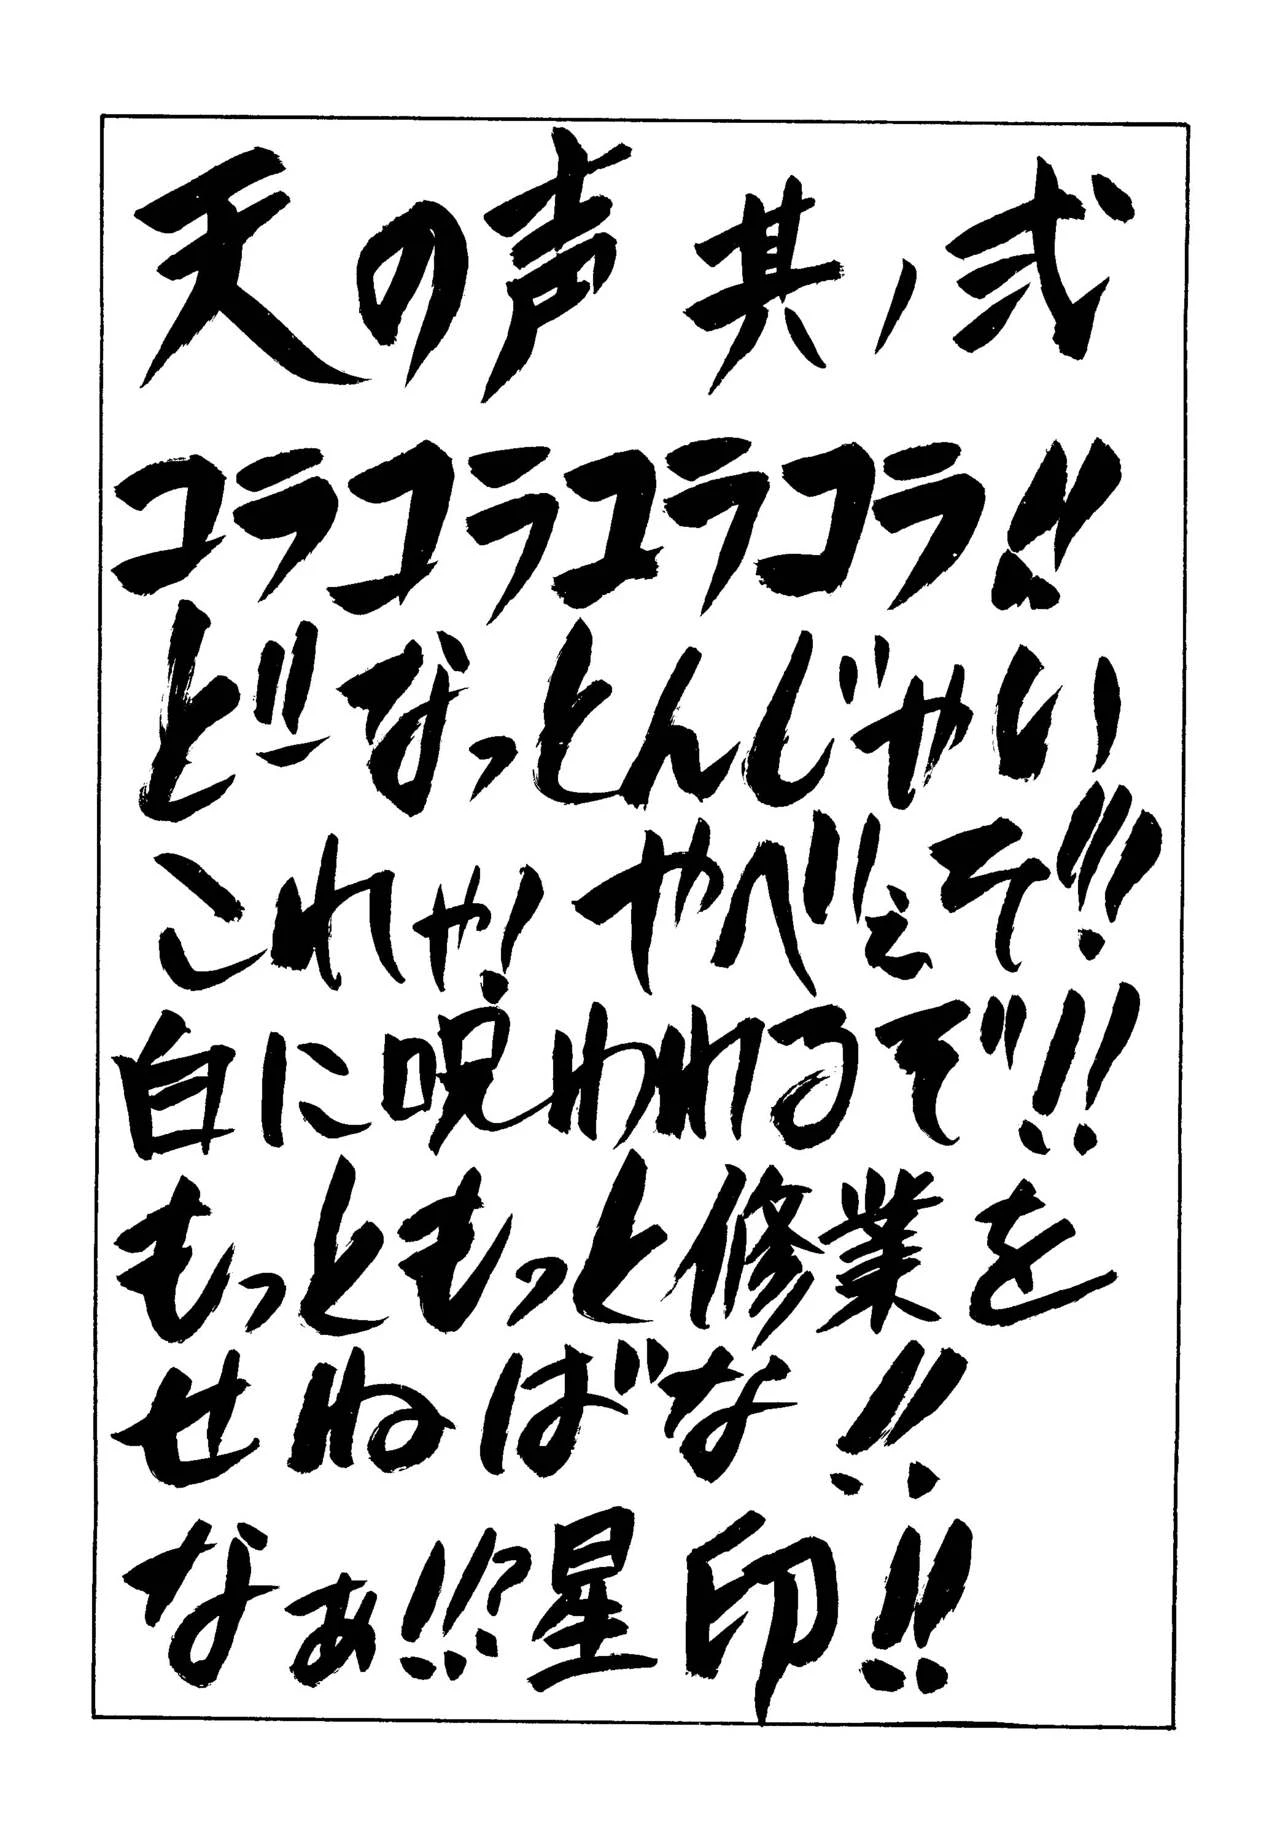 天の声 其ノ弐
コラコラコラコラ!!
どーなっとんじゃい
これゃ!やべぇぞ!!!
白に呪われるぞ!!
もっともっと修業を
せねばな!!
なぁ!!?星印!!